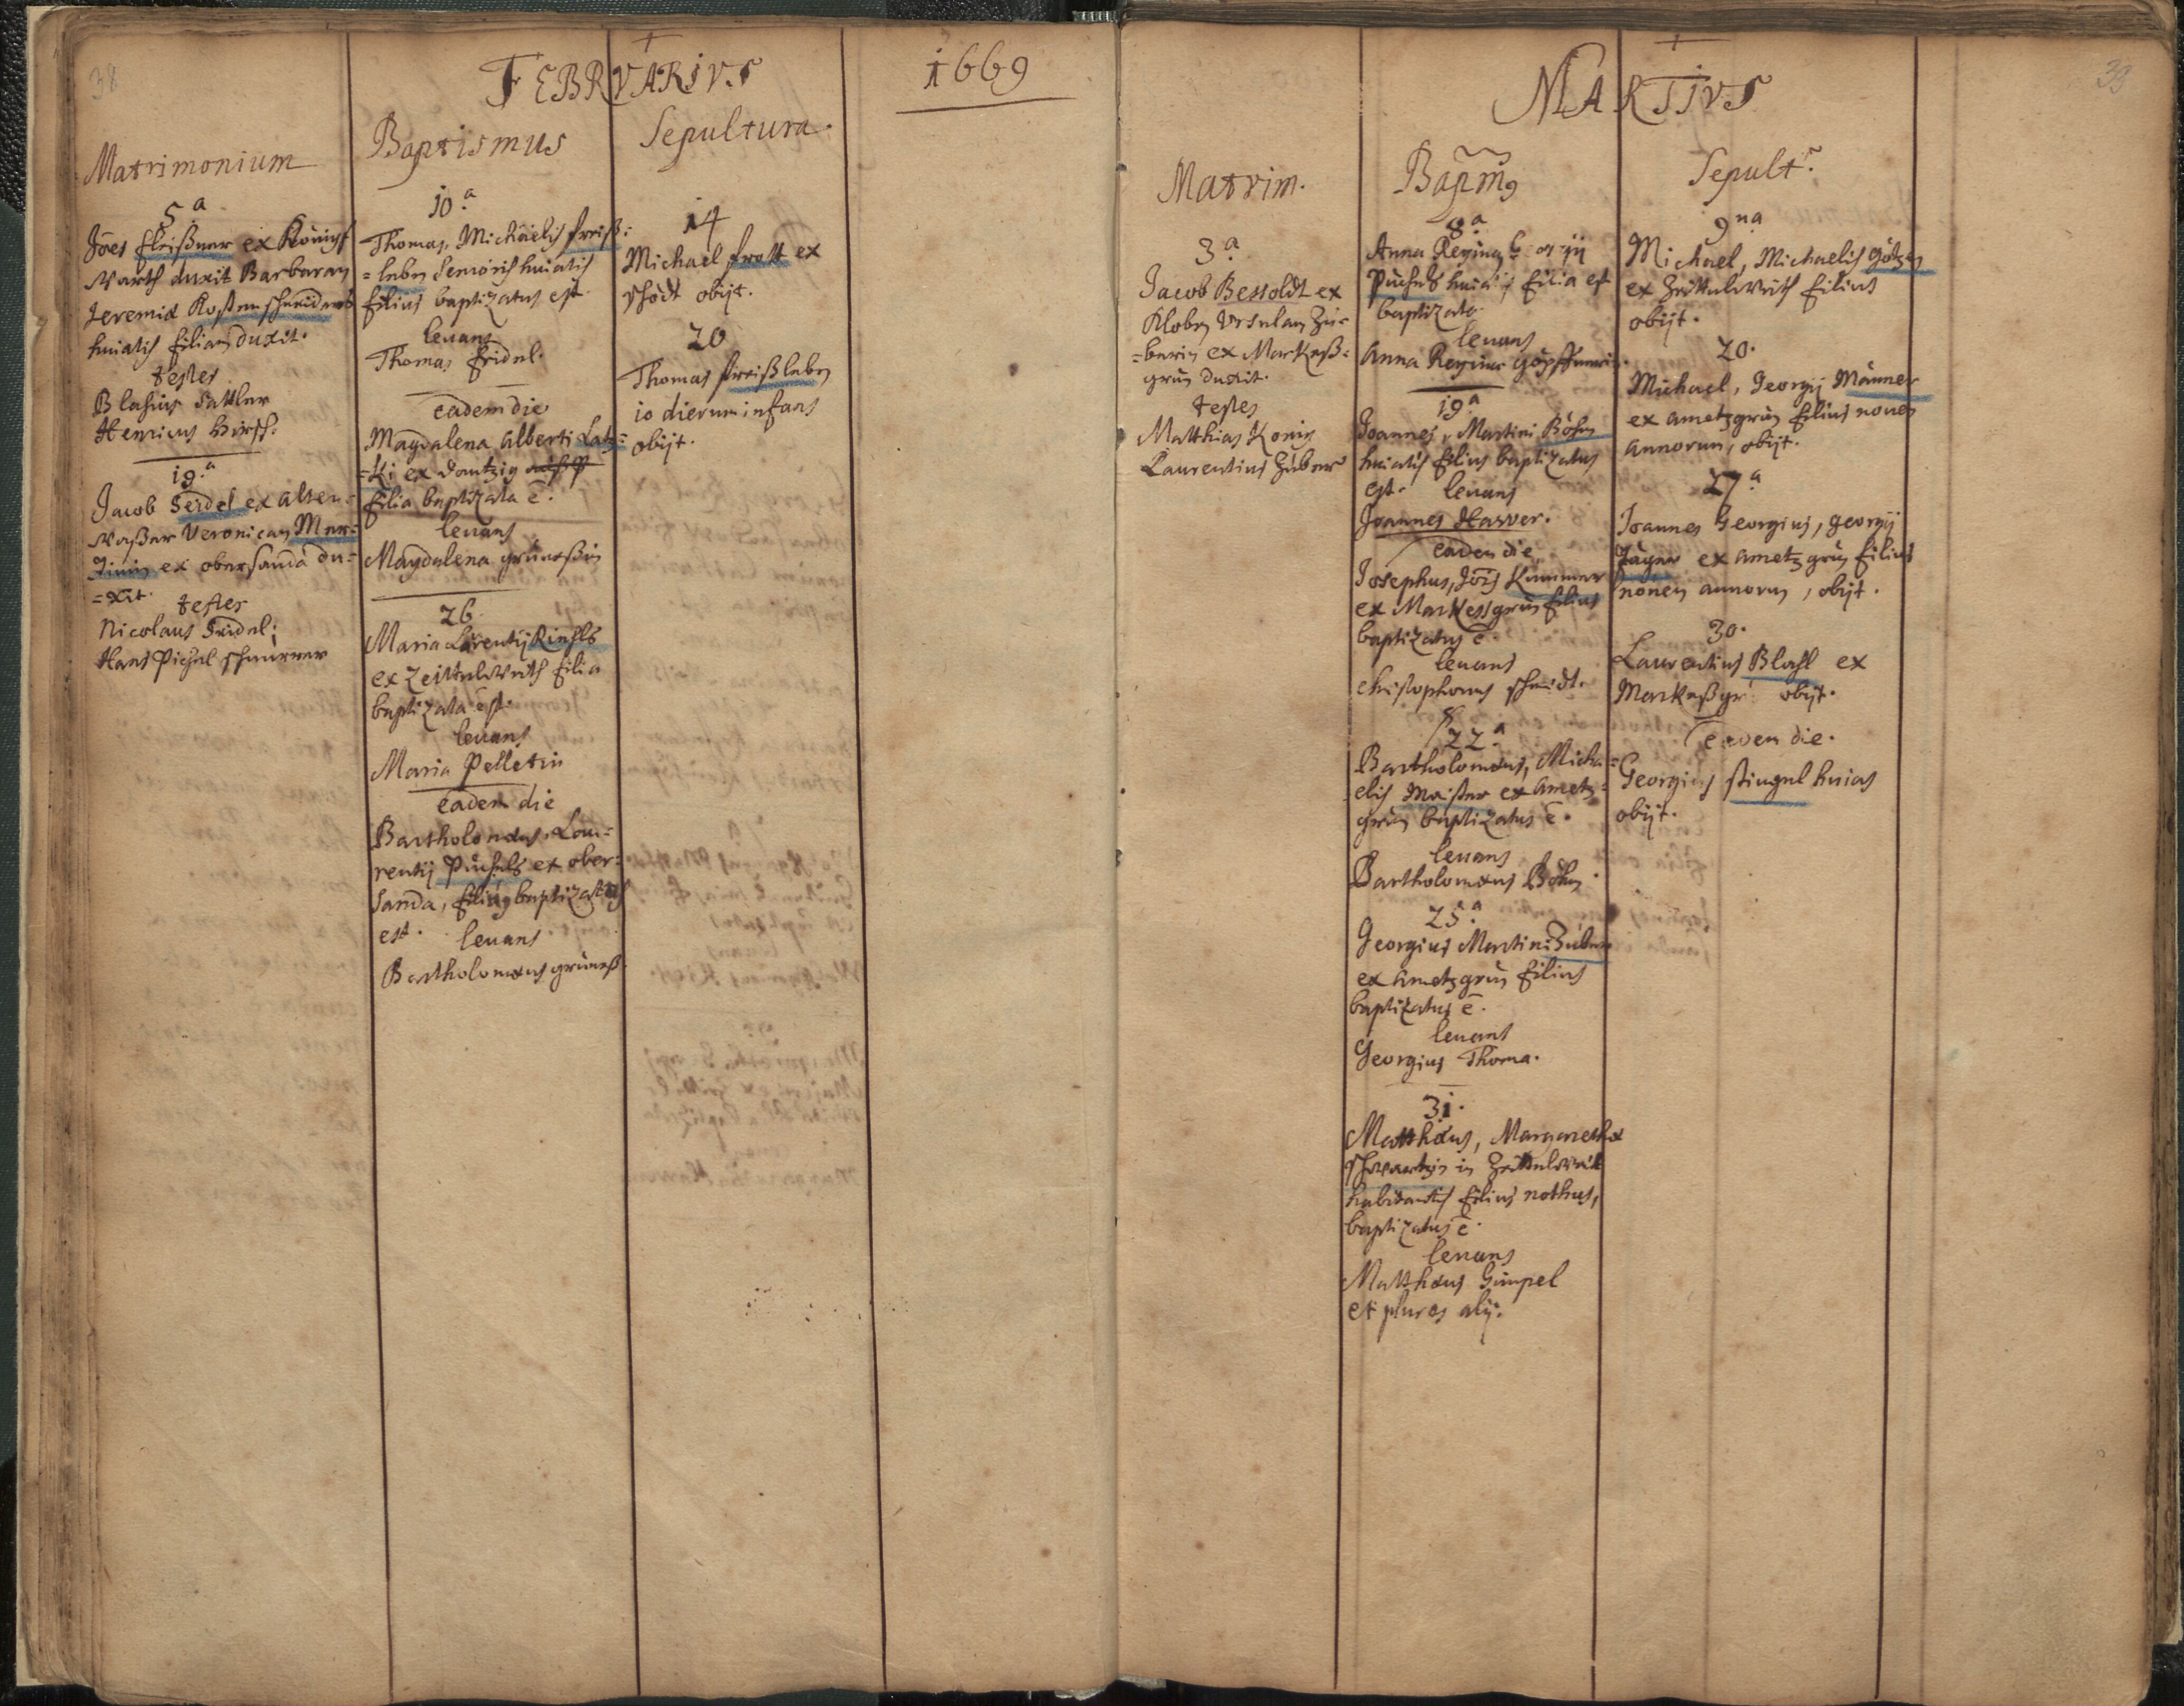 38
FEBRVARIVS
1669
Matrimonium
5.a
Jöes fleißner ex Königs
warth duxit Barbaram
Jeremiæ
huiatis filiam duxit.
testes
Blasius Sattler
Henricus Hirsch.
19.a
Jacob Serdel ex alten-
waßer Veronicam Mar-
tinin ex obersanda du-
=xit.
testes
Nicolaus Seidel;
Hans Pichel
Baptismus
10.a
Thomas, Michäelis freiß:
=leben Senioris huiatis
filius baptizatus est.
levans
Thomas fridel.
eadem die
Magdalena Alberti
=ki ex Dantzig
filia baptizata ē.
levans
Magdalena
26.
Maria
ex Zeittelweith filia
baptizata est.
levans
Maria Pelletin
Eadem die
Bartholomæus, Lau-
rentij Püchels ex ober-
sanda, filius baptizatus
est. levans
Bartholomæus
Sepultura.
14
Michael frott ex
schödt obijt.
20
Thomas freißleben
10 dierum infans
obijt.
39
MARTIVS
Matrim.
3.a
Jacob Bessoldt ex
Kloben Vrsulam Zü-
=berin ex Markeß-
grün duxit.
testes
Matthias König
Laurentius Züber
Bapm9
8.a
Anna Regina, Georgij
Püchels huiatis filia est
baptizata
levans
Anna Regina
19.a
Joannes, Martini Böhm
huiatis filius baptizatus
est. levans
Joannes Harver.
Eadem die
Josephus, Jöis Kummer
ex Markessgrün filius
baptizatus ē.
levans
Christophorus schmidt.
22.a
Bartholomæus, Micha-
elis Meister ex ametz-
grün baptizatus ē.
levans
Bartholomæus Böhm.
25.a
Georgius Martini Züber
ex ametzgrün filius
baptizatus ē.
levans
Georgius Thoma.
31.
Matthæus, Margarethæ
schwartzin in Zeittelweith
habitantis filius nothus,
baptizatus ē.
levans
Matthæus Gümpel
et plures alij.
Sepult.
9na
Michael, Michaelis Götzen
ex Zeittelweith filius
obijt.
20.
Michael, Georgij Männer
ex ametzgrün filius novem
annorum, obijt.
27.a
Joannes Georgius, Georgij
Jäger ex ametzgrün filius
novem annorum, obijt.
30.
Laurentius Blahl ex
Markeßgr: obijt.
Eadem die.
Georgius stingel huias
obijt.